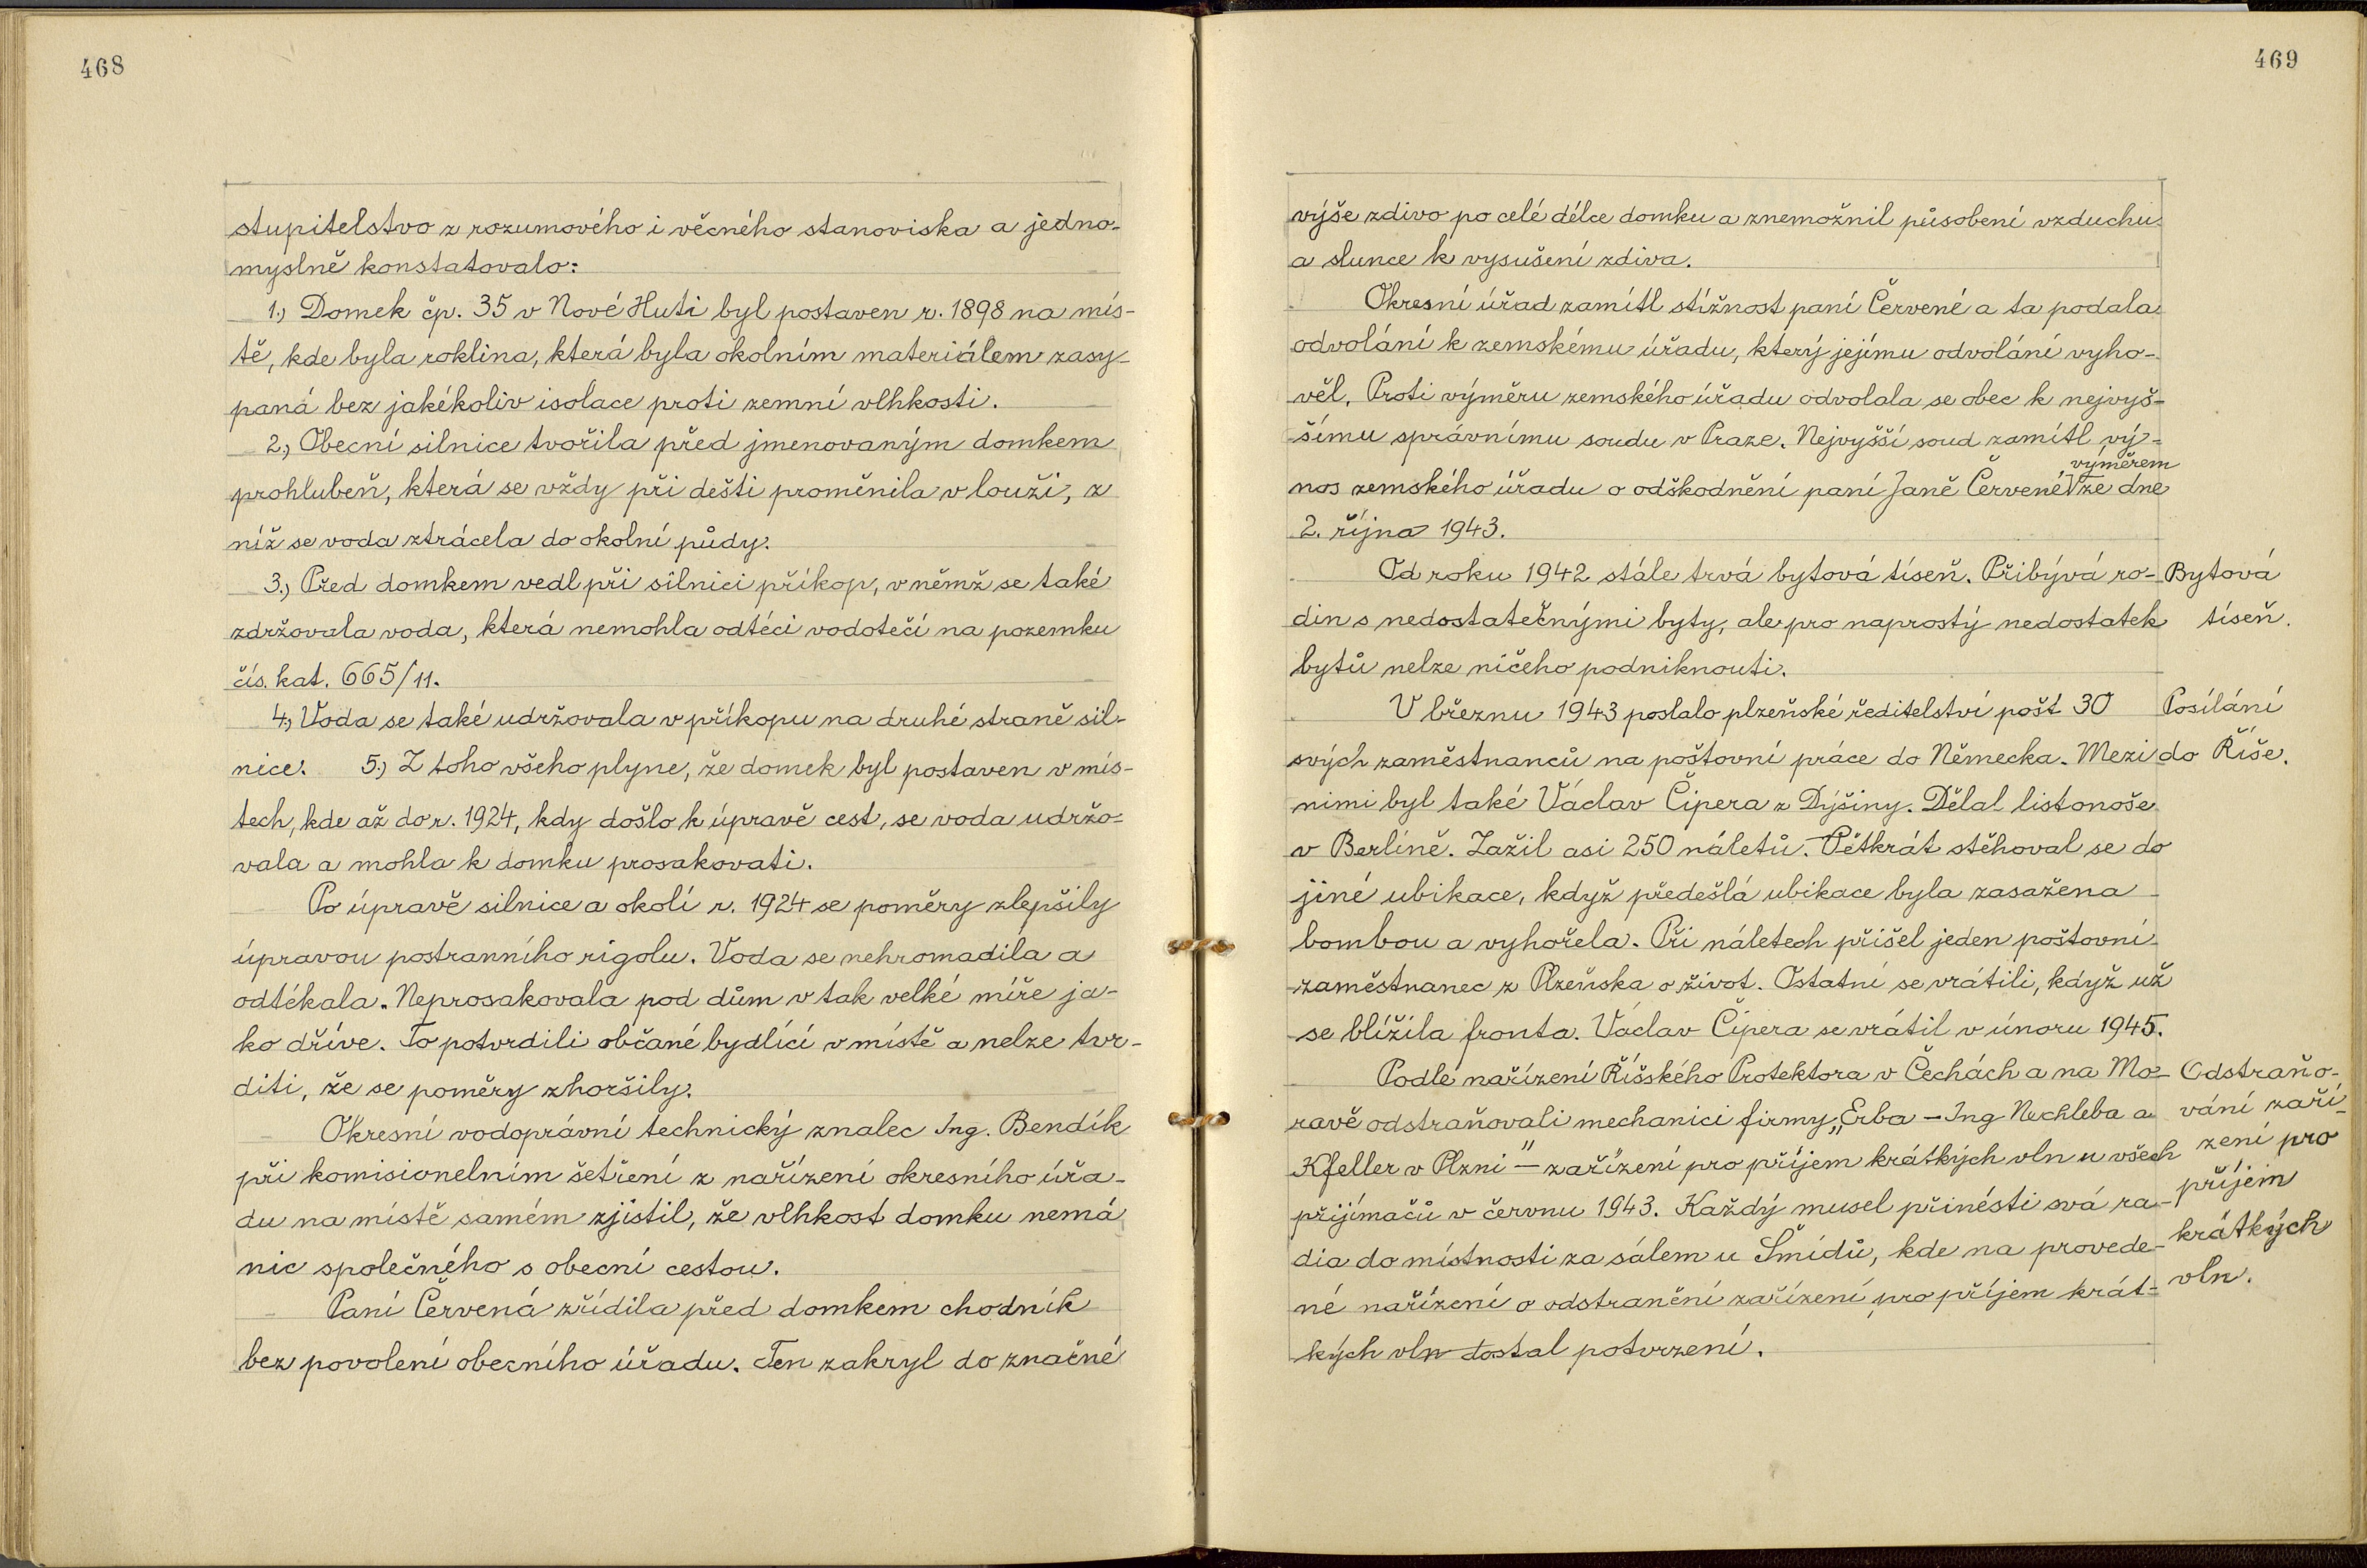 468
stupitelstvo z rozumového i věcného stanoviska a jedno-
myslně konstatovalo:
1.) Domek čp. 35 v Nové Huti byl postaven r. 1898 na mís-
tě, kde byla roklina, která byla okolním materiálem zasy-
paná bez jakékoliv isolace proti zemní vlhkosti.
2.) Obecní silnice tvořila před jmenovaným domkem
prohlubeň, která se vždy při dešti proměnila v louži, z
níž se voda ztrácela do okolní půdy.
3.) Před domkem vedl při silnici příkop, v němž se také
zdržovala voda, která nemohla odtéci vodotečí na pozemku
čís. kat. 665/11.
4.) Voda se také udržovala v příkopu na druhé straně sil-
nice. 5.) Z toho všeho plyne, že domek byl postaven v mís-
tech, kde až do r. 1924, kdy došlo k úpravě cest, se voda udržo-
vala a mohla k domku prosakovati.
Po úpravě silnice a okolí r. 1924 se poměry zlepšily
úpravou postranního rigolu. Voda se nehromadila a
odtékala. Neprosakovala pod dům v tak velké míře ja-
ko dříve. To potvrdili občané bydlící v místě a nelze tvr-
diti, že se poměry zhoršily.
Okresní vodoprávní technický znalec Ing. Bendík
při komisionelním šetření z nařízení okresního úřa-
du na místě samém zjistil, že vlhkost domku nemá
nic společného s obecní cestou.
Paní Červená zřídila před domkem chodník
bez povolení obecního úřadu. Ten zakryl do značné
469
výše zdivo po celé délce domku a znemožnil působení vzduchu
a slunce k vysušení zdiva.
Okresní úřad zamítl stížnost paní Červené a ta podala
odvolání k zemskému úřadu, který jejímu odvolání vyho-
věl. Proti výměru zemského úřadu odvolala se obec k nejvyš-
šímu správnímu soudu v Praze. Nejvyšší soud zamítl vý-
výměrem
nos zemského úřadu o odškodnění paní Janě Červené ze dne
2. října 1943.
Od roku 1942 stále trvá bytová tíseň. Přibývá ro-
din s nedostatečnými byty, ale pro naprostý nedostatek
bytů nelze ničeho podniknouti.
Bytová
tíseň.
V březnu 1943 poslalo plzeňské ředitelství pošt 30
svých zaměstnanců na poštovní práce do Německa. Mezi
nimi byl také Václav Čipera z Dýšiny. Dělal listonoše
v Berlíně. Zažil asi 250 náletů. Pětkrát stěhoval se do
jiné ubikace, když předešlá ubikace byla zasažena
bombou a vyhořela. Při náletech přišel jeden poštovní
zaměstnanec z Plzeňska o život. Ostatní se vrátili, když už
se blížila fronta. Václav Čipera se vrátil v únoru 1945.
Posílání
do Říše.
Podle nařízení Říšského Protektora v Čechách a na Mo-
ravě odstraňovali mechanici firmy „Erba - Ing Nechleba a
Kfeller v Plzni" - zařízení pro příjem krátkých vln u všech
přijímačů v červnu 1943. Každý musel přinésti svá ra-
dia do místnosti za sálem u Šmídů, kde na provede-
né nařízení o odstranění zařízení pro příjem krát-
kých vln dostal potvrzení.
Odstraňo-
vání zaří-
zení pro
příjem
krátkých
vln.